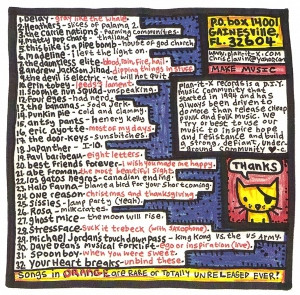 1. Delay - Gray like the whale.
2. Heathers - slices of palama 2.
3. the carrie nations - Farming communities.
4. matty pop chart - thailand.
5. this bike is a pipe bomb - house of god church
6. madeline - I left the light on.
7. the dauntless elite - blood, rain, fire, hail.
8. andrew jackson jihad - dipping things in stuff.
9. the devil is electric - I will not quit.
10. erin tobey - jeff's lament.
11. soophie nun squad - unspeaking.
12. four eyes - had me soon.
13. the bananas - Soda Jerk.
14. Punkin pie - cold and clammy.
15. antsy pants - henery kelly.
16. eric ayotte - most of my days.
17. the door-keys - sunbitches.
18. Japanther - I-10.
19. Paul baribeau - eight letters.
20. best friends forever - wish you made me happy.
21. abe froman - the most beautiful sights.
22. los gatos negros - canadian ending.
23. halo fauna - blame a bird for your shortcoming.
24. one reason - christmas and thanksgiving.
25. Sissies - lamp party (yeah).
26. Rosa - Meercats.
27. Ghost mice - the moon will rise.
28. Stressface - suck it trebeck (with saxophone).
29. Michael Jordan's touch down pass - king kong vs. the US Army.
30. dave dean's musical forklift - ego or inspiration (live).
31. Spoonboy - when you were sweet.
32. Your Heart breaks - unbind these.
songs in orange are rare or totally unreleased ever!
P.O. box 14001
GAINESVILLE,
FL 32604
www.plan-it-x.com
chrisclavin@yahoo.com
MAKE MUSIC
plan-it-x records is a D.I.Y.
Music community that
started in 1994 and has
always been driven to
damage than release cheap
punk and folk music. We
try or best to use our
music to inspire hope
and resistance and build
a strong, defiant, under-
ground community
THANKS